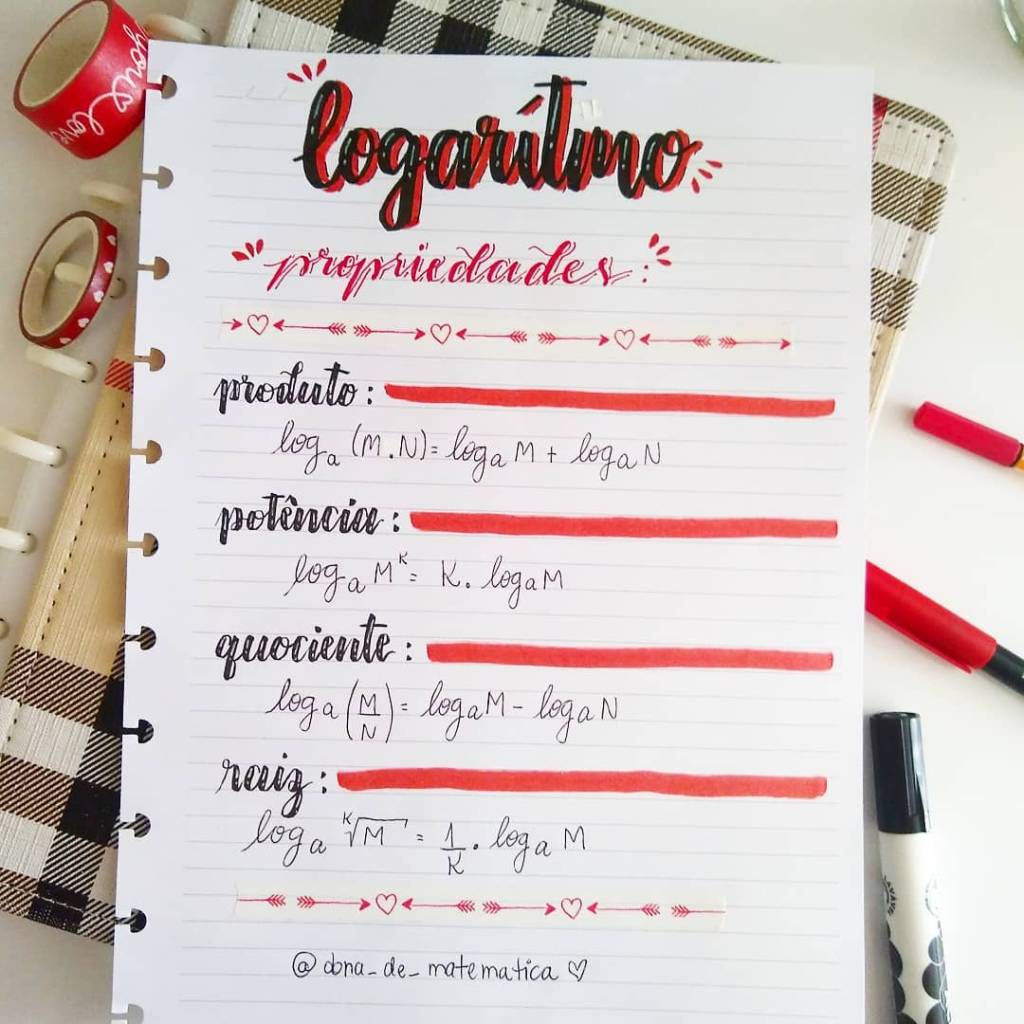 you love
logarítmo
propriedades:
produto:
logₐ (M.N)= logₐ M + logₐ N
potência:
logₐ Mᴷ= K. logₐ M
quociente:
logₐ (M/N)= logₐ M - logₐ N
raiz:
logₐ ᴷ√M = 1/K . logₐ M
@dona_de_matematica ♡